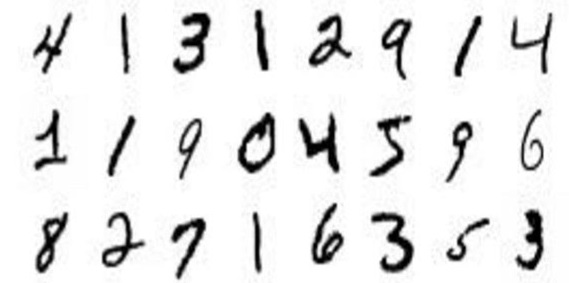 4 1 3 1 2 9 1 4
1 1 9 0 4 5 9 6
8 2 7 1 6 3 5 3